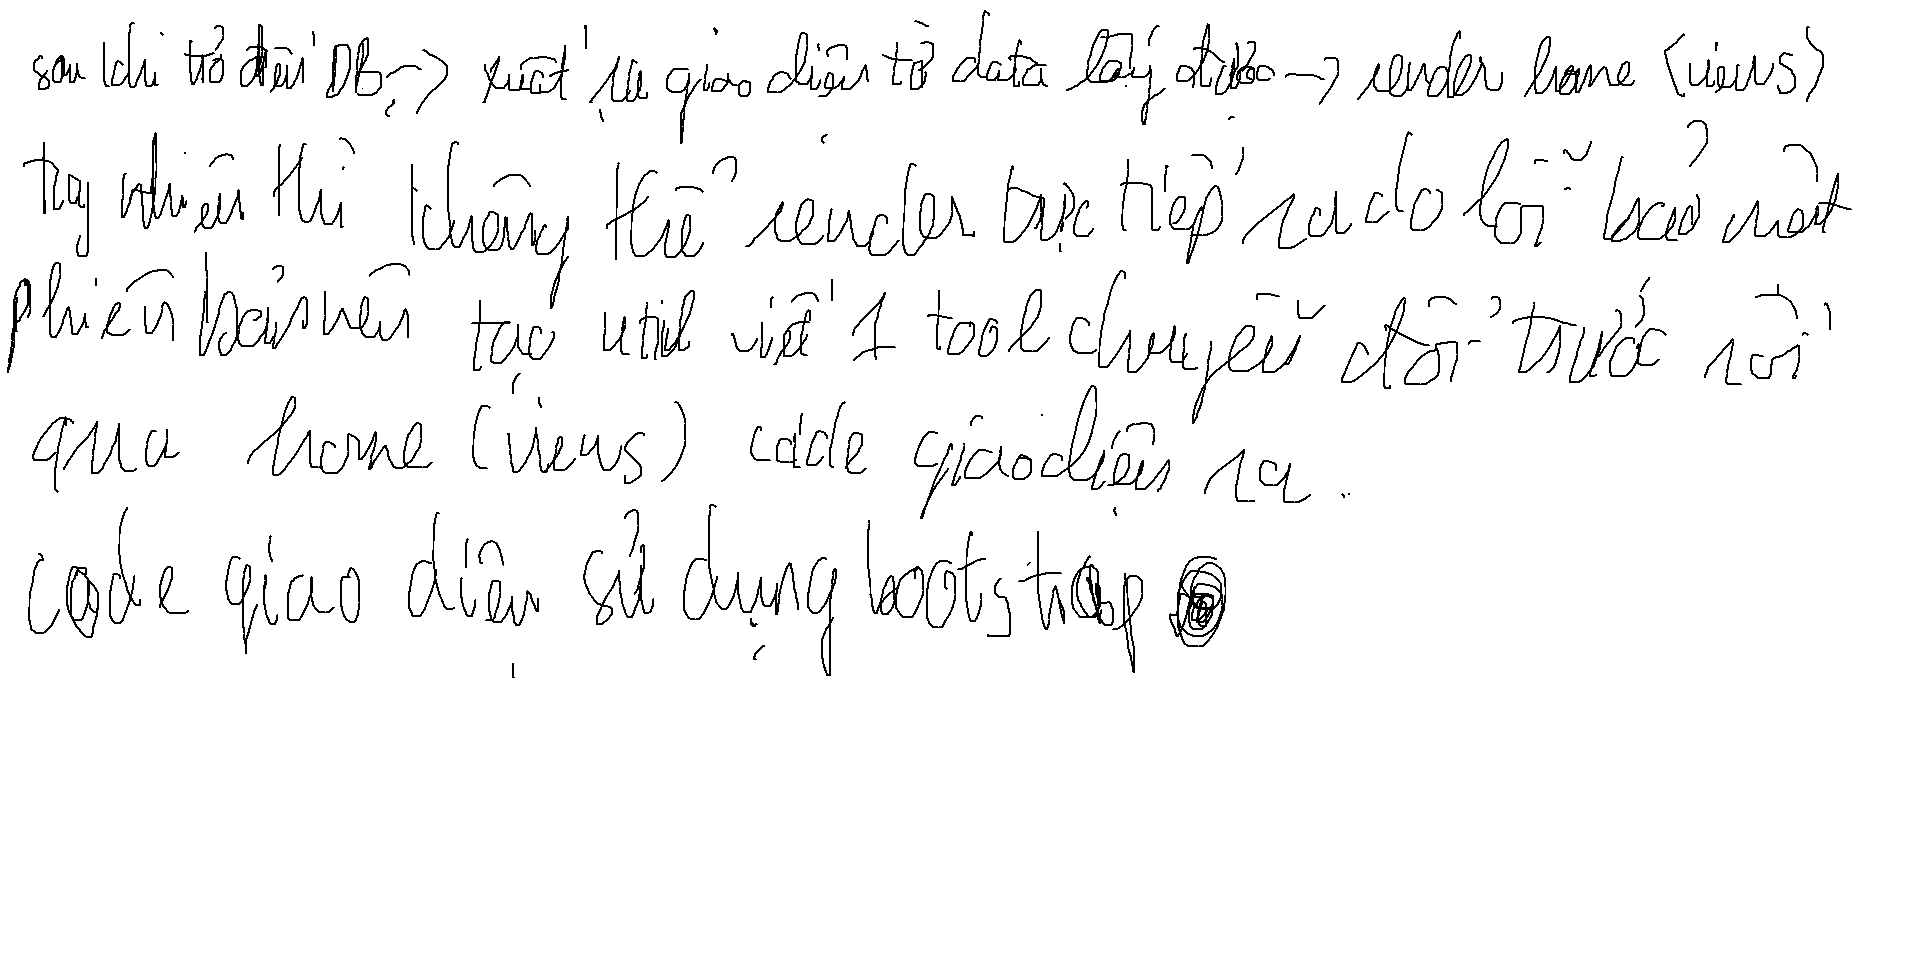 sau khi trỏ đến DB → xuất ra giao diện từ data lấy được → render home (views)
tuy nhiên thì không thể render trực tiếp ra do lỗi bảo mật
phiên bản nên tạo util viết 1 tool chuyển đổi trước rồi
qua home (views) code giao diện ra.
code giao diện sử dụng bootstrap